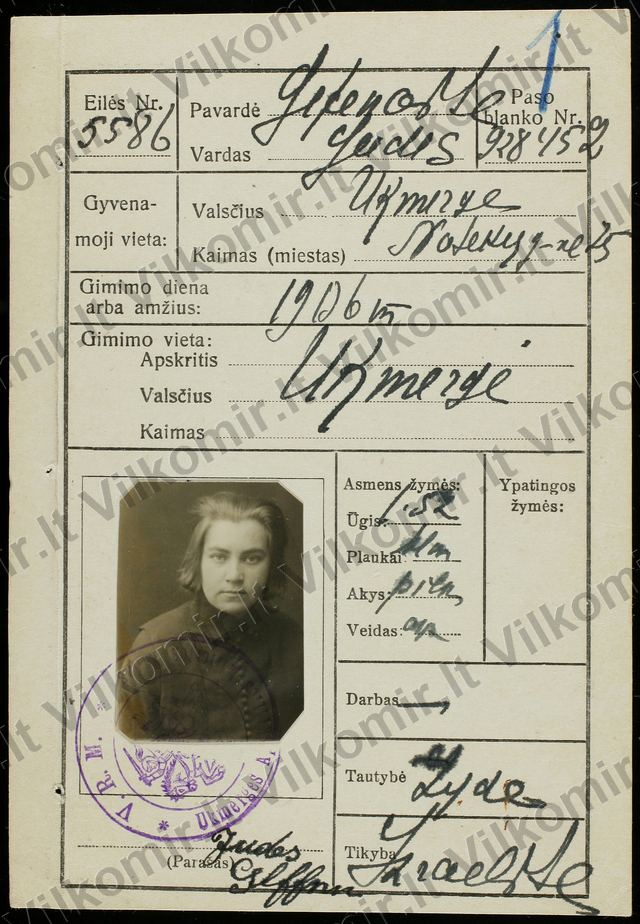 1
Eilės Nr.
5586
Pavardė
Vardas Judes
Paso
blanko Nr.
928452
Gyvena-
moji vieta:
Valsčius Ukmerge
Kaimas (miestas)
Gimimo diena
arba amžius: 1906 m
Gimimo vieta:
Apskritis
Valsčius Ukmergė
Kaimas
Asmens žymės:
Ūgis: 1.52
Plaukai
Akys: pilk
Veidas:
Ypatingos
žymės:
Darbas —
Tautybė Žydė
Tikyba Izraelitė
V. R. M. * Ukmergės
(Parašas)
Judes
Vilkomir.lt